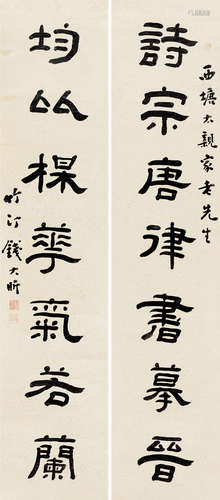 西塘太親家老先生
詩宗唐律書摹晉
均楳華氣若蘭
竹汀錢大昕